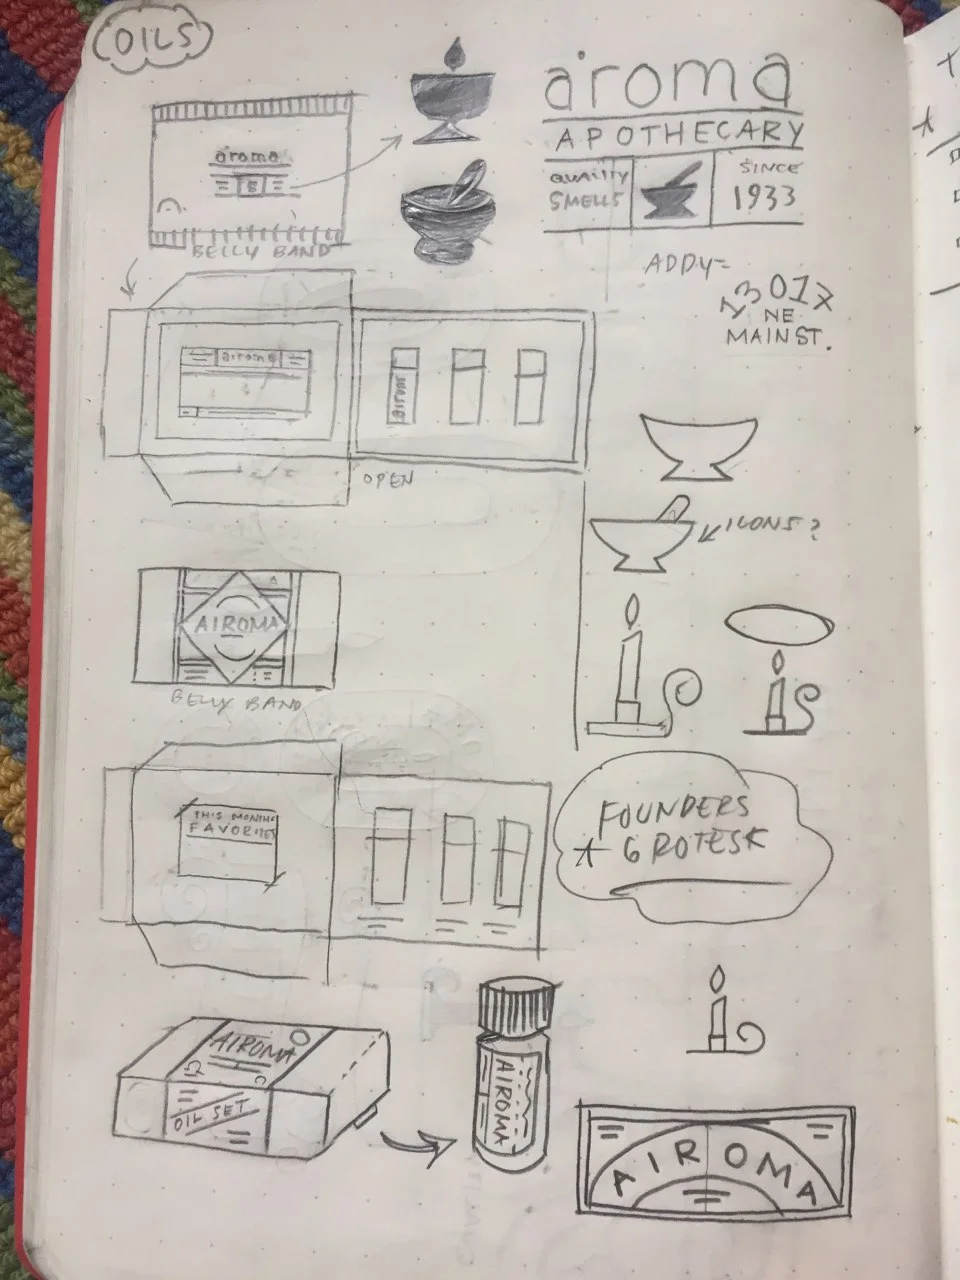 OILS
aroma
BELLY BAND
aroma
APOTHECARY
QUALITY
SMELLS
SINCE
1933
ADDY-
13017
NE
MAIN ST.
airoma
airoma
OPEN
ICONS?
AIROMA
BELLY BAND
THIS MONTHS
FAVORITES
FOUNDERS
GROTESK
AIROMA
OIL SET
AIROMA
AIROMA